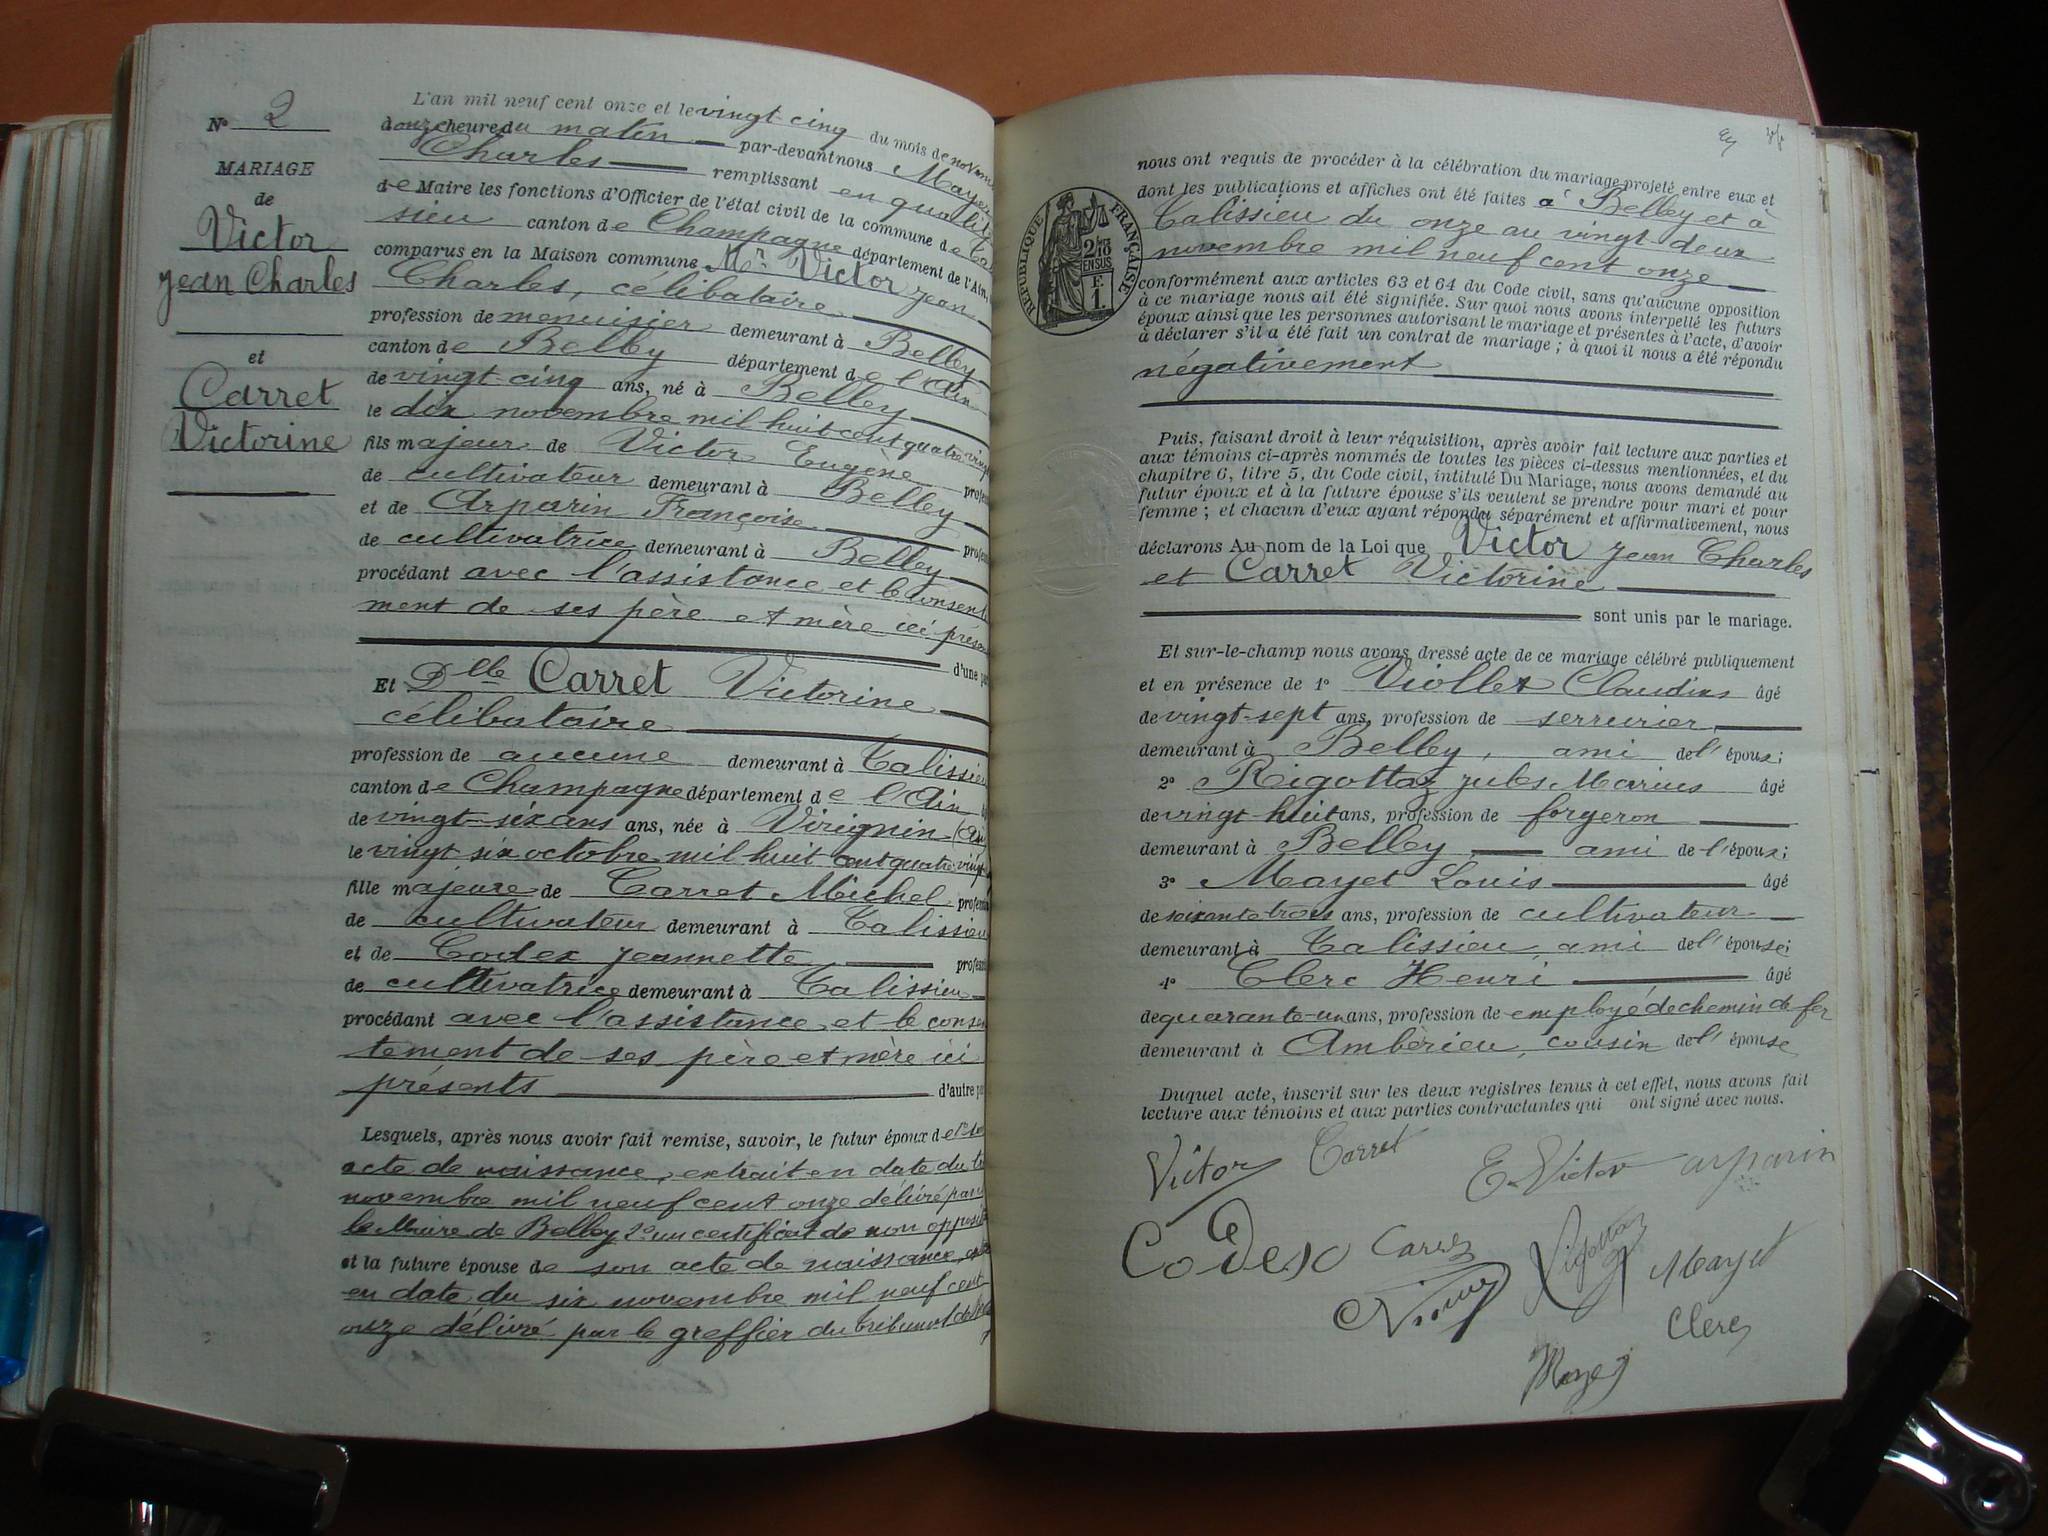 N° 2
MARIAGE
de
Victor
Jean Charles
et
Carret
Victorine
L'an mil neuf cent onze et le vingt cinq du mois de novem
à onze heure du matin par-devant nous Mayet
Charles remplissant en qualit
de Maire les fonctions d'Officier de l'état civil de la commune de Ta
sieu canton de Champagne département de l'Ain,
comparus en la Maison commune Mr Victor Jean
Charles, célibataire
profession de menuisier demeurant à Belley
canton de Belley département de l'Ain
de vingt-cinq ans, né à Belley
le dix novembre mil huit cent quatre vingt
fils majeur de Victor Eugène profes
de cultivateur demeurant à Belley
et de Arparin Françoise profes
de cultivatrice demeurant à Belley
procédant avec l'assistance et le consente
ment de ses père et mère ici présen
d'une par
Et Dlle Carret Victorine
célibataire
profession de aucune demeurant à Talissieu
canton de Champagne département de l'Ain
de vingt-six ans ans, née à Virignin (Ain
le vingt six octobre mil huit cent quatre-vingt
fille majeure de Carret Michel profession
de cultivateur demeurant à Talissieu
et de Codex Jeannette profession
de cultivatrice demeurant à Talissieu
procédant avec l'assistance et le consen
tement de ses père et mère ici
présents d'autre par
Lesquels, après nous avoir fait remise, savoir, le futur époux de 1° son
acte de naissance, extrait en date du
novembre mil neuf cent onze délivré par
le Maire de Belley 2° un certificat de non opposit
et la future épouse de son acte de naissance,
en date du six novembre mil neuf cent
onze délivré par le greffier du tribunal de
nous ont requis de procéder à la célébration du mariage projeté entre eux et
dont les publications et affiches ont été faites à Belley et à
Talissieu du onze au vingt deux
novembre mil neuf cent onze
RÉPUBLIQUE FRANÇAISE
2/10
EN SUS
F
1.
conformément aux articles 63 et 64 du Code civil, sans qu'aucune opposition
à ce mariage nous ait été signifiée. Sur quoi nous avons interpellé les futurs
époux ainsi que les personnes autorisant le mariage et présentes à l'acte, d'avoir
à déclarer s'il a été fait un contrat de mariage ; à quoi il nous a été répondu
négativement
Puis, faisant droit à leur réquisition, après avoir fait lecture aux parties et
aux témoins ci-après nommés de toutes les pièces ci-dessus mentionnées, et du
chapitre 6, titre 5, du Code civil, intitulé Du Mariage, nous avons demandé au
futur époux et à la future épouse s'ils veulent se prendre pour mari et pour
femme ; et chacun d'eux ayant répondu séparément et affirmativement, nous
déclarons Au nom de la Loi que Victor Jean Charles
et Carret Victorine
sont unis par le mariage.
Et sur-le-champ nous avons dressé acte de ce mariage célébré publiquement
et en présence de 1° Viollet Claudius âgé
de vingt-sept ans, profession de serrurier
demeurant à Belley, ami de l'époux;
2° Rigottaz Jules Marius âgé
de vingt huit ans, profession de forgeron
demeurant à Belley ami de l'époux;
3° Mayet Louis âgé
de soixante trois ans, profession de cultivateur
demeurant à Talissieu, ami de l'épouse;
4° Clerc Henri âgé
de quarante-un ans, profession de employé de chemin de fer
demeurant à Ambérieu, cousin de l'épouse
Duquel acte, inscrit sur les deux registres tenus à cet effet, nous avons fait
lecture aux témoins et aux parties contractantes qui ont signé avec nous.
Victor Carret E Victor arparin
Codex Carret Rigottaz Mayet
Clerc
Mayet